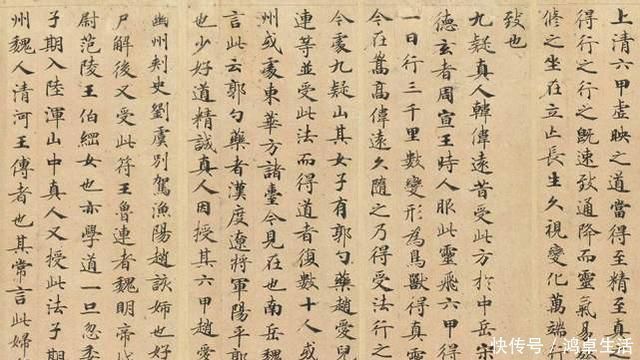 上清六甲虛映之道當得至精至真
得行之行之既速致通降而靈氣易
修之坐在立亡長生久視變化萬端
致也
九疑真人韓偉遠昔受此方於中岳宋
德玄者周宣王時人服此靈飛六甲得
一日行三千里數變形為鳥獸得真靈
今在嵩高偉遠久隨之乃得受法行之
今處九疑山其女子有郭勺藥趙愛兒
連等並受此法而得道者復數十人或
州或處東華方諸臺今見在也南岳魏
言此云郭勺藥者漢度遼將軍陽平郭
也少好道精誠真人因授其六甲趙愛
幽州刺史劉虞別駕漁陽趙該姊也好
尸解後又受此符王魯連者魏明帝
尉范陵王伯綱女也亦學道一旦忽委
子期入陸渾山中真人又授此法子期
州魏人清河王傳者也其常言此婦
快传号/鸿卓生活